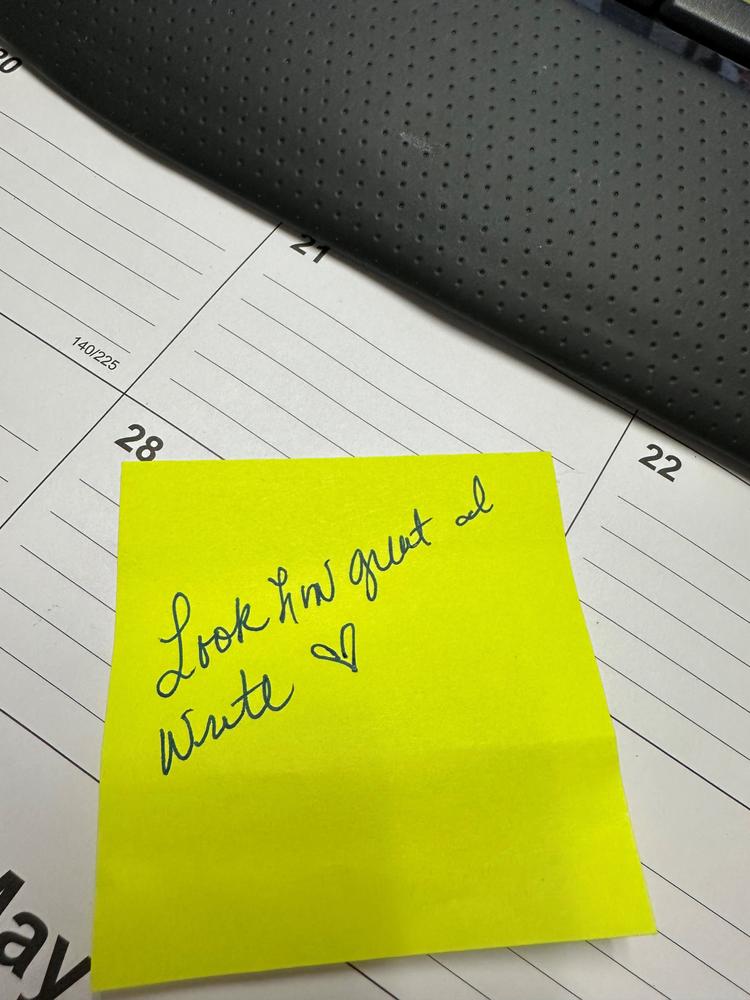 20
21
140/225
28
22
Look how great I
Write ♡
May